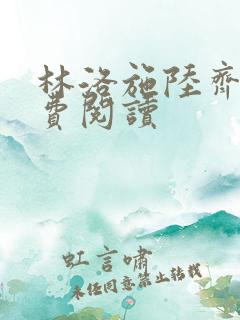 林洛施陸齊
費閱讀
虹言嘯
未经同意禁止转载